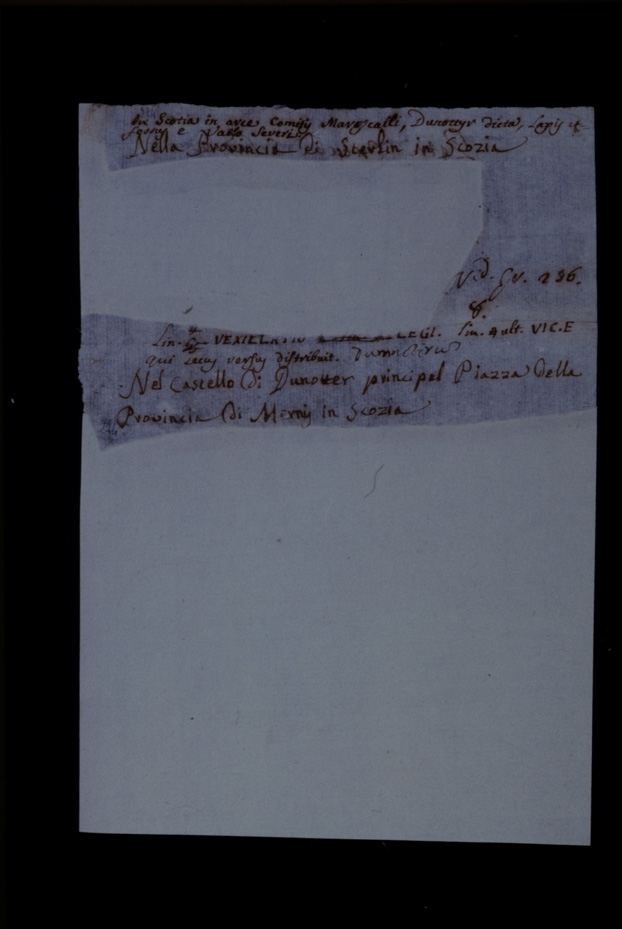 In Scotia in arce Comitis Marescalli, Dunottyr dicta, Lapis et
e Vallo Severi
Nella Provincia di Sterlin in Scozia
Vid. Gr. 296.
8.
Lin. VEXILLATIO LEGI. Lin. 4 ult. VIC.E
qui secus versus distribuit.
Nel Castello di Dunotter principal Piazza della
Provincia di Mernis in Scozia